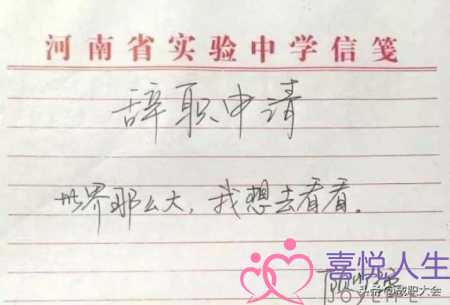 河南省实验中学信笺
辞职申请
世界那么大，我想去看看。
喜悦人生